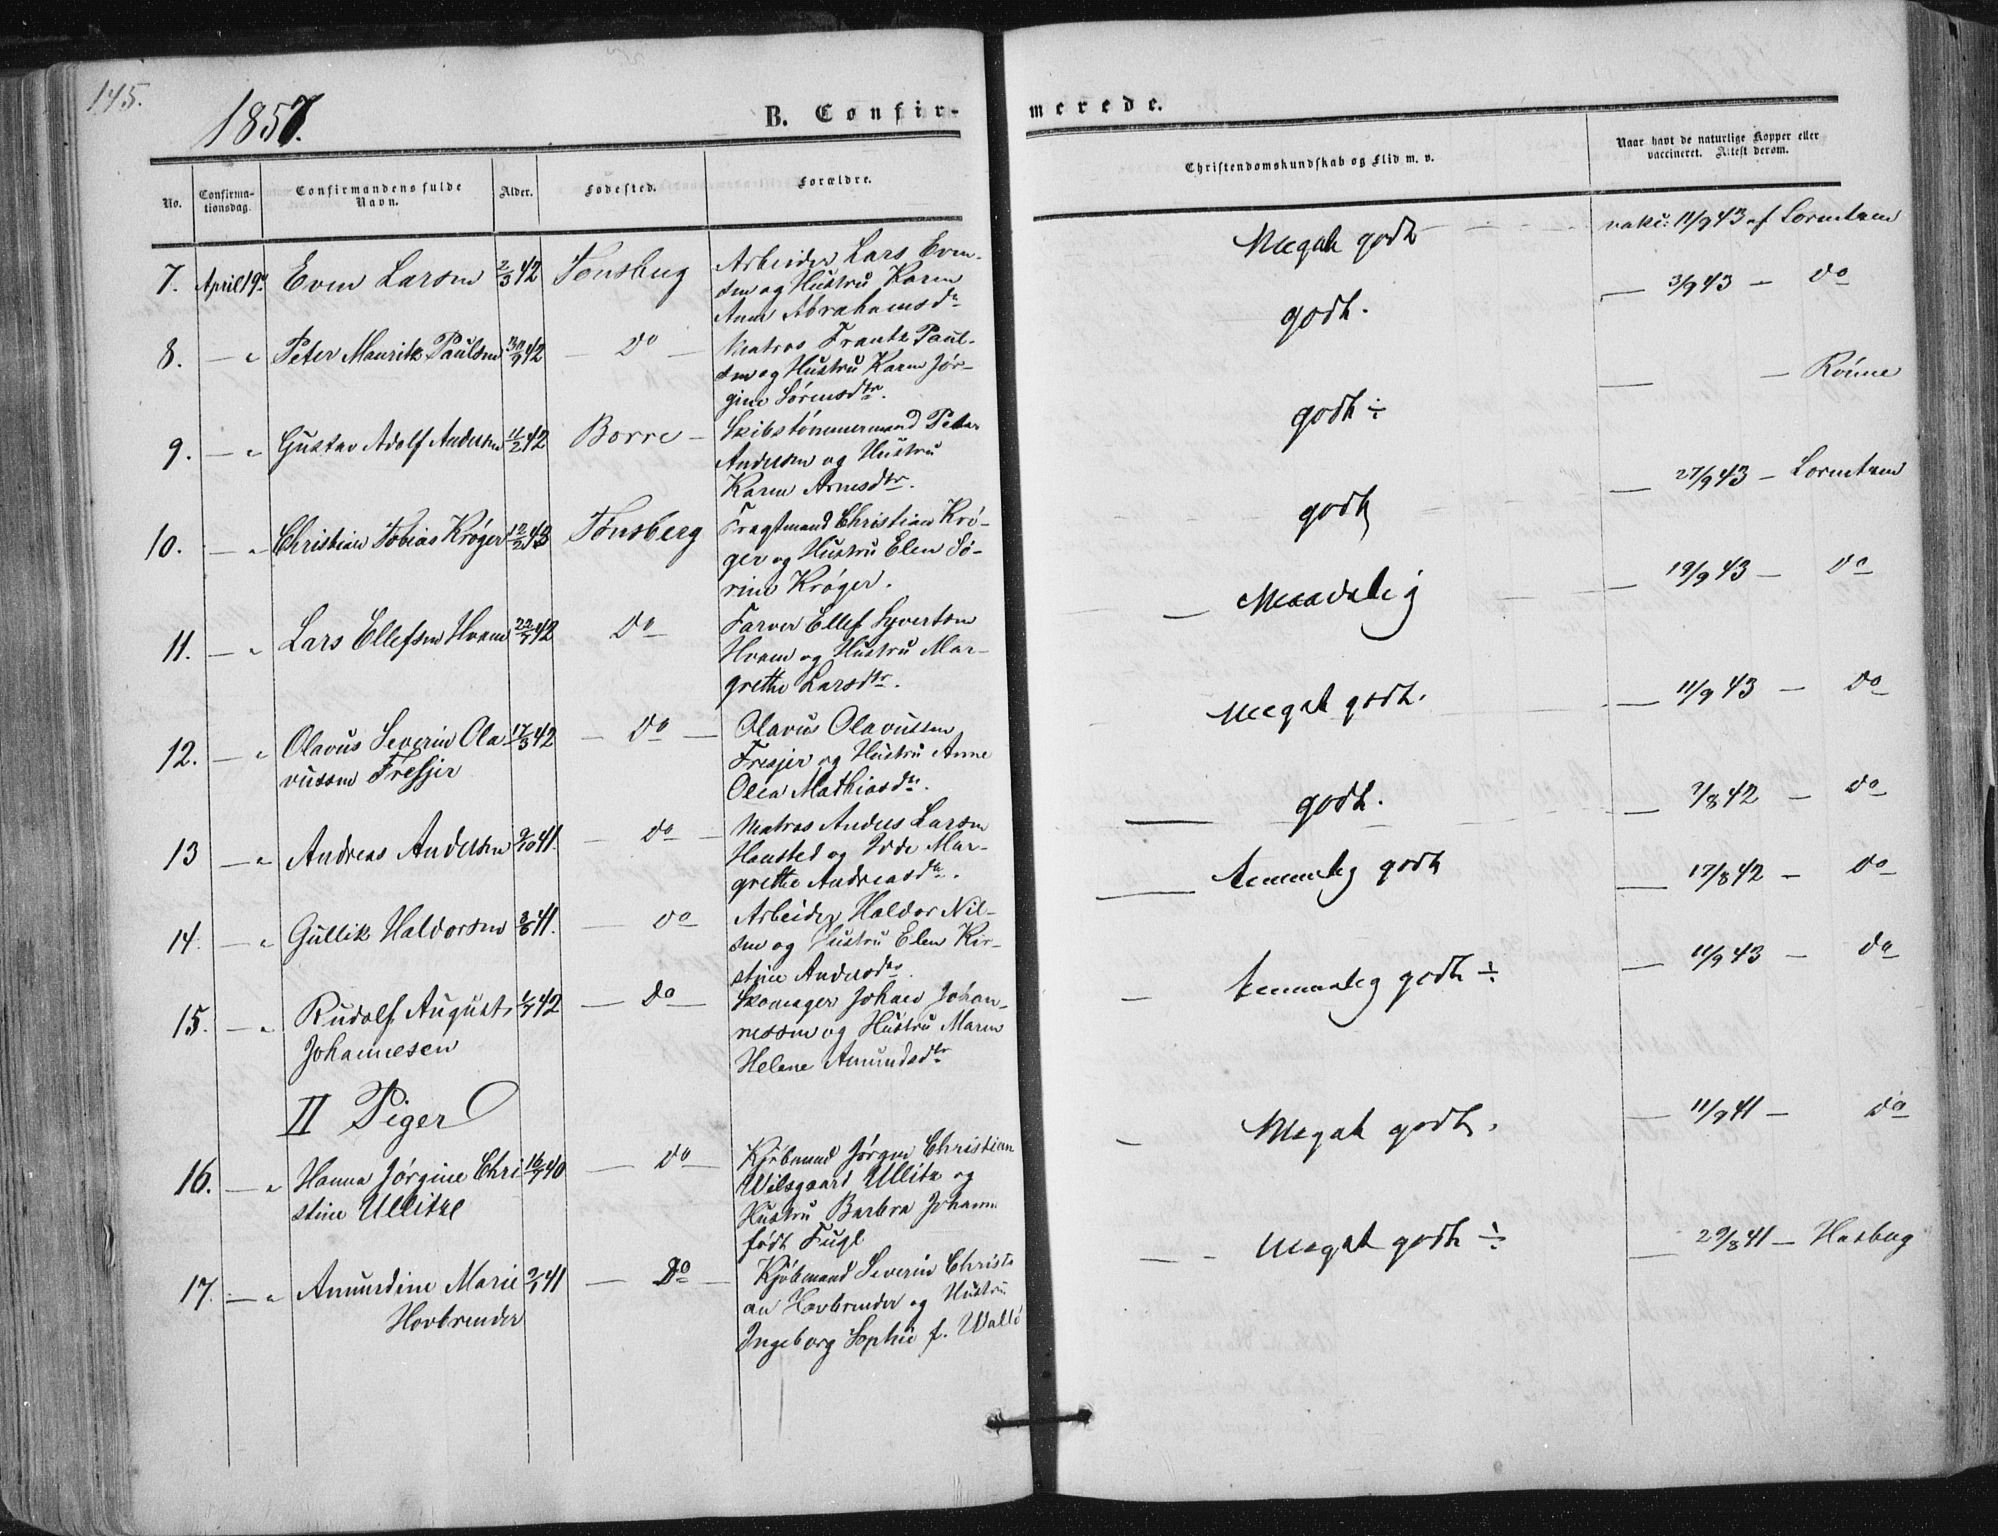 145.
1857.
B. Confir-
merede.
No.
Confirma-
tionsdag.
Confirmandens fulde
Navn.
Alder.
Fødested.
Forældre.
Christendomskundskab og Flid m. v.
Naar havt de naturlige Kopper eller
vaccineret. Attest derom.
7. April 19de Even Larsen 2/3 42 Tønsberg
Arbeider Lars Even-
sen og Hustru Karen
Anne Abrahamsdr
Meget godt
vakc: 11/9 43 af Lorentzen
8. — " Peter Mauritz Paulsen 42 — Do —
Matros Frantz Paul-
sen og Hustru Karen Jør-
gine Sørensdtr.
godt.
— 3/9 43 — Do
9. — " Gustav Adolf Andersen 11/2 42 Borre —
Skibstømmermand Peter
Andersen og Hustru
Karen Arnesdtr.
godt ÷
— — Rönne
10. — " Christian Tobias Krøger 12/2 43 Tønsberg
Fragtmand Christian Krø-
ger og Hustru Elen Sø-
rine Krøger.
godt
— 27/9 43 — Lorentzen
11. — " Lars Ellefsen Hvam 22/7 42 Do
Farver Ellef Syvertsen
Hvam og Hustru Mar-
grethe Larsdtr.
— Maadelig
— 19/9 43 — Do
12. — " Olavus Severin Ola- 17/3 42 — Do —
vussen Fresjer
Olavus Olavussen
Fresjer og Hustru Anne
Olea Mathiasdtr.
Meget godt.
— 11/9 43 — Do
13 — " Andreas Andersen 9/10 41. — Do —
Matros Anders Larsen
Hansted og Inde Mar-
grethe Andreasdtr.
godt.
— 7/8 42 — Do
14. — " Gullik Haldorsen 41. — Do
Arbeider Haldor Nil-
sen og Hustru Elen Kir-
stine Andersdtr.
temmelig godt
— 17/8 42 — Do
15. — " Rudolf August 42 — Do —
Johannesen
Skomager Johan Johan-
nessen og Hustru Maren
Helene Amundsdtr
— temmelig godt ÷
— 11/9 43 — Do
II Piger
16. — " Hanna Jørgine Chri 16/7 40 — Do —
stine Ullitze
Kjøbmand Jørgen Christian
Wilsgaard Ullitz og
Hustru Barbra Johanne
født Fugl
— Meget godt.
— 11/9 41 — Do
17. — " Amundine Marie 2/1 41 — Do —
Hovbrender
Kjøbmand Severin Christi
an Hovbrender og Hustru
Ingeborg Sophie f. Wallø
— Meget godt ÷
— 29/8 41 — Hasberg